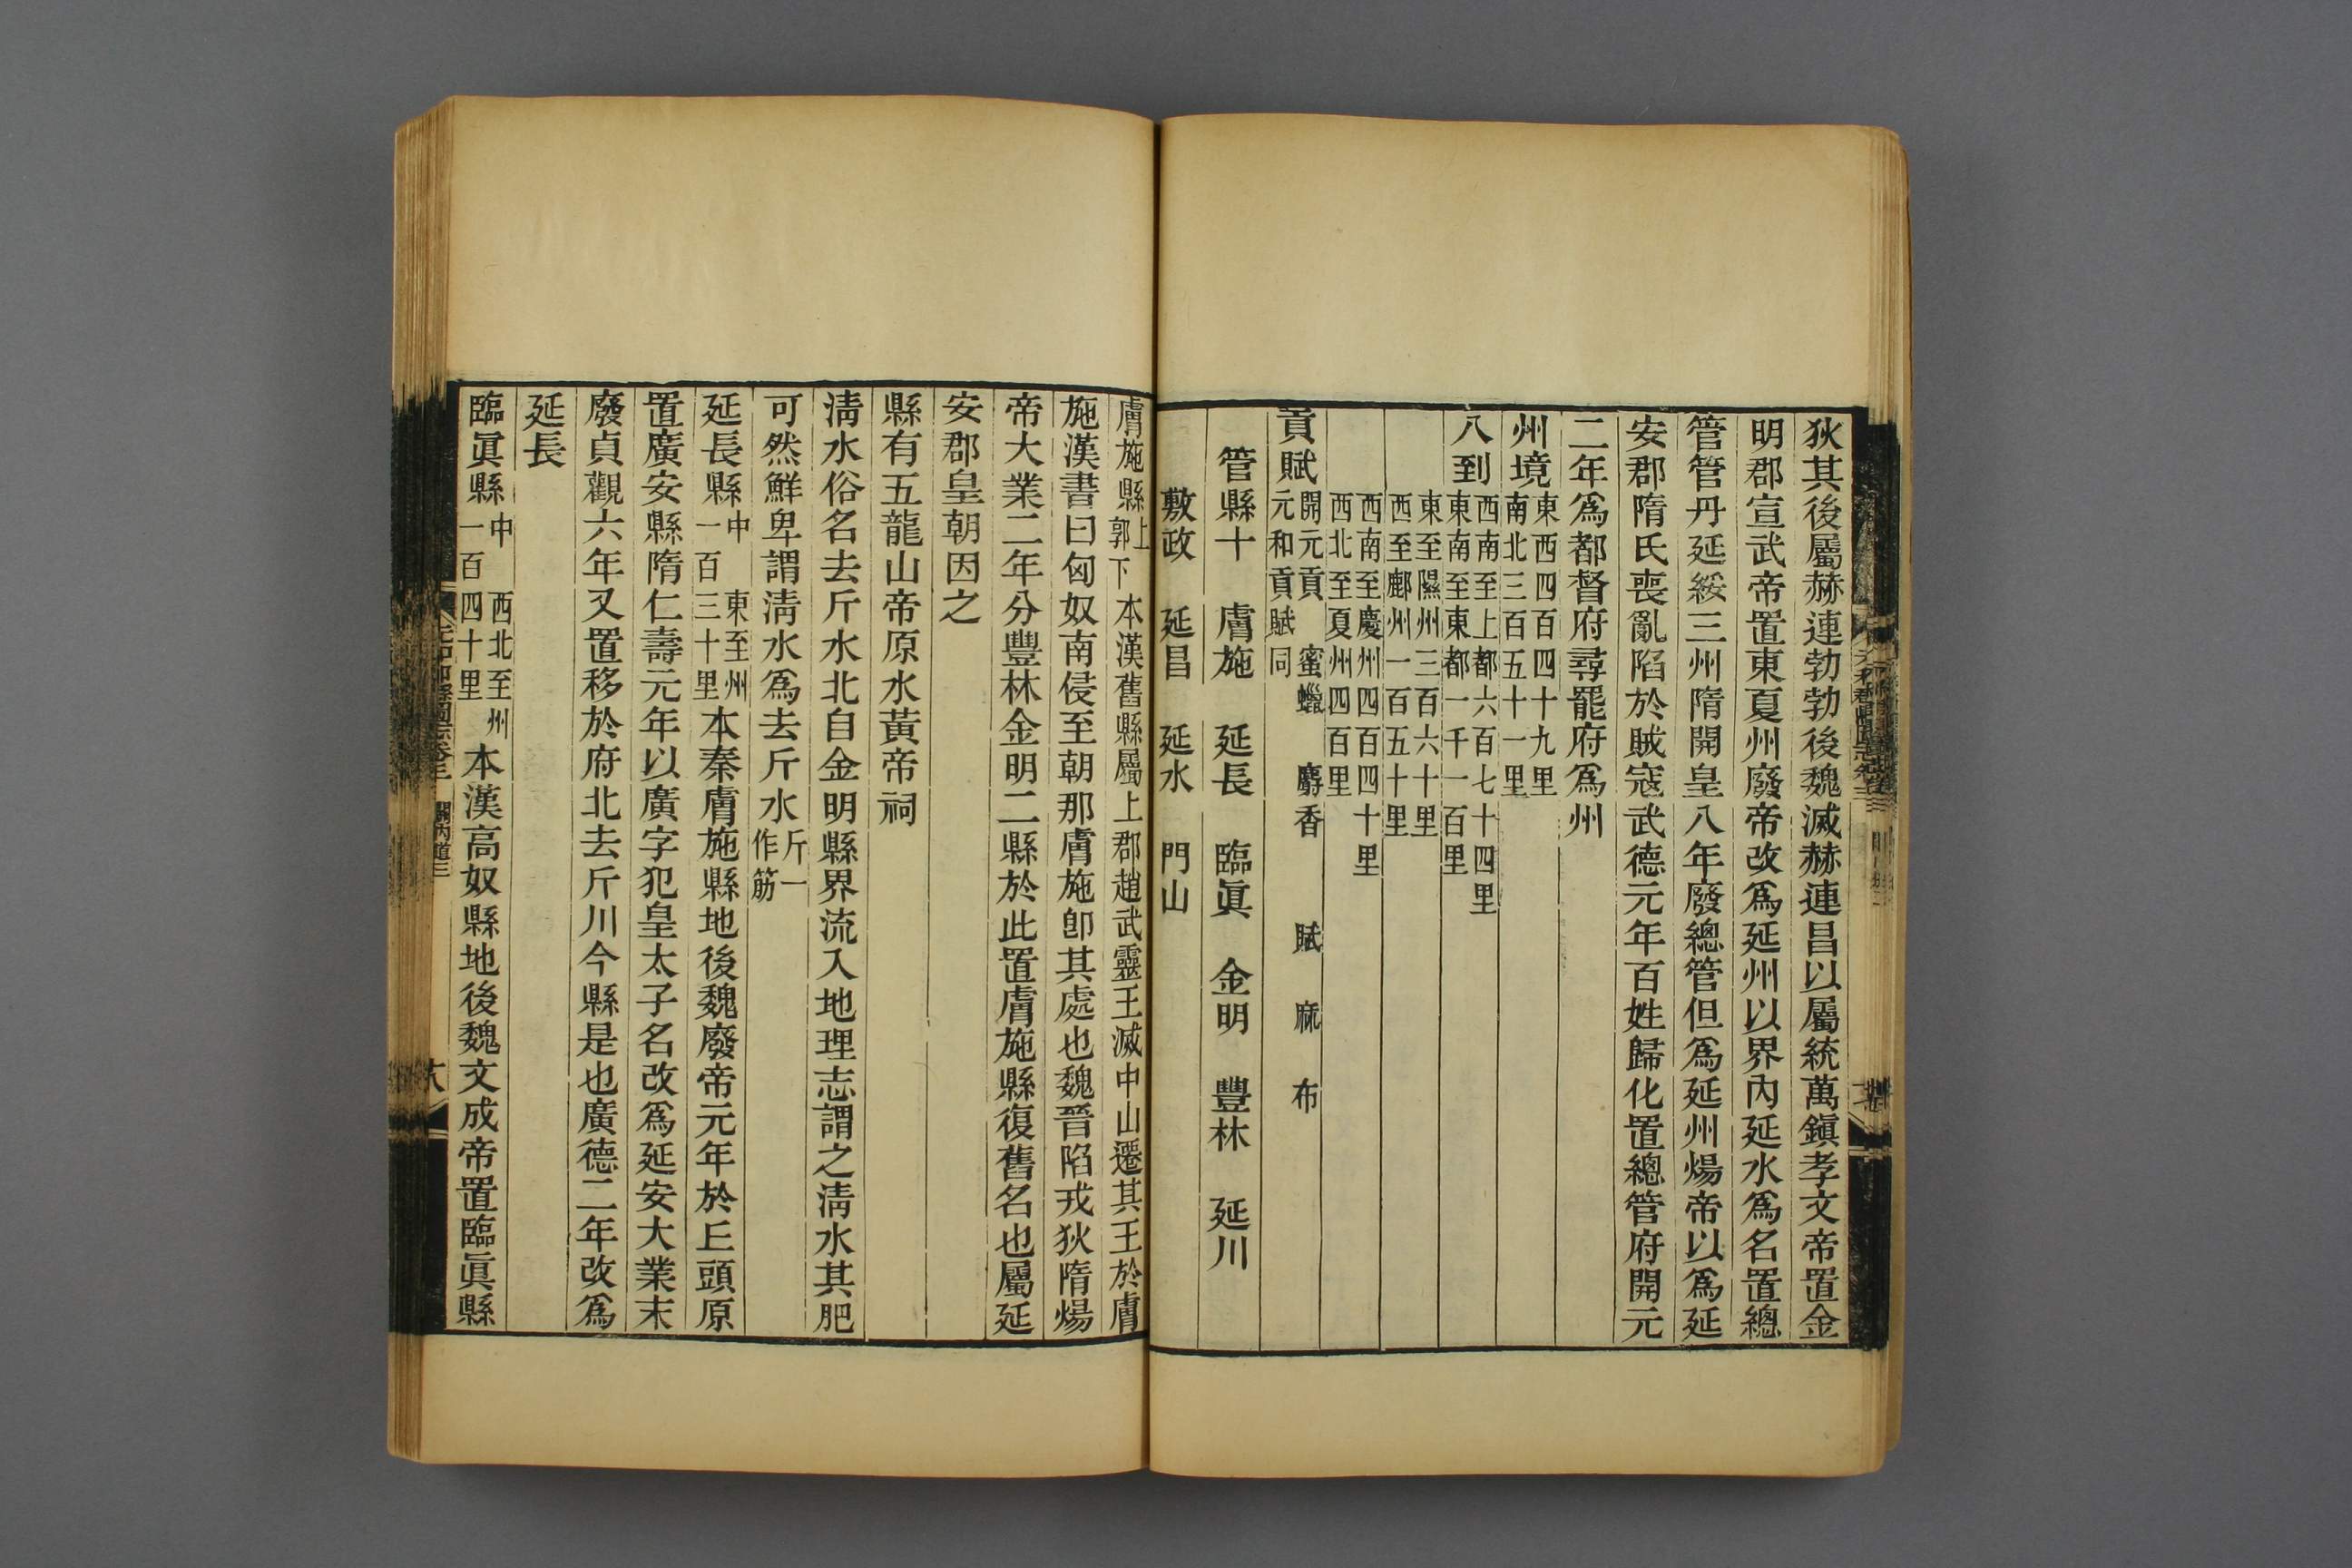 狄其後屬赫連勃勃後魏滅赫連昌以屬統萬鎭孝文帝置金
明郡宣武帝置東夏州廢帝改爲延州以界內延水爲名置總
管管丹延綏三州隋開皇八年廢總管但爲延州煬帝以爲延
安郡隋氏喪亂陷於賊寇武德元年百姓歸化置總管府開元
二年爲都督府尋罷府爲州
州境
東西四百四十九里
南北三百五十一里
八到
西南至上都六百七十四里
東南至東都一千一百里
東至隰州三百六十里
西至鄜州一百五十里
西南至慶州四百四十里
西北至夏州四百里
貢賦
開元貢 蜜蠟 麝香 賦 麻 布
元和貢賦同
管縣十 膚施 延長 臨眞 金明 豐林 延川
敷政 延昌 延水 門山
膚施縣
上
郭下
本漢舊縣屬上郡趙武靈王滅中山遷其王於膚
施漢書曰匈奴南侵至朝那膚施卽其處也魏晉陷戎狄隋煬
帝大業二年分豐林金明二縣於此置膚施縣復舊名也屬延
安郡皇朝因之
縣有五龍山帝原水黃帝祠
淸水俗名去斤水北自金明縣界流入地理志謂之淸水其肥
可然鮮卑謂淸水爲去斤水
斤一
作筋
延長縣
中 東至州
一百三十里
本秦膚施縣地後魏廢帝元年於丘頭原
置廣安縣隋仁壽元年以廣字犯皇太子名改爲延安大業末
廢貞觀六年又置移於府北去斤川今縣是也廣德二年改爲
延長
臨眞縣
中 西北至州
一百四十里
本漢高奴縣地後魏文成帝置臨眞縣
元和郡縣圖志卷三 關內道三